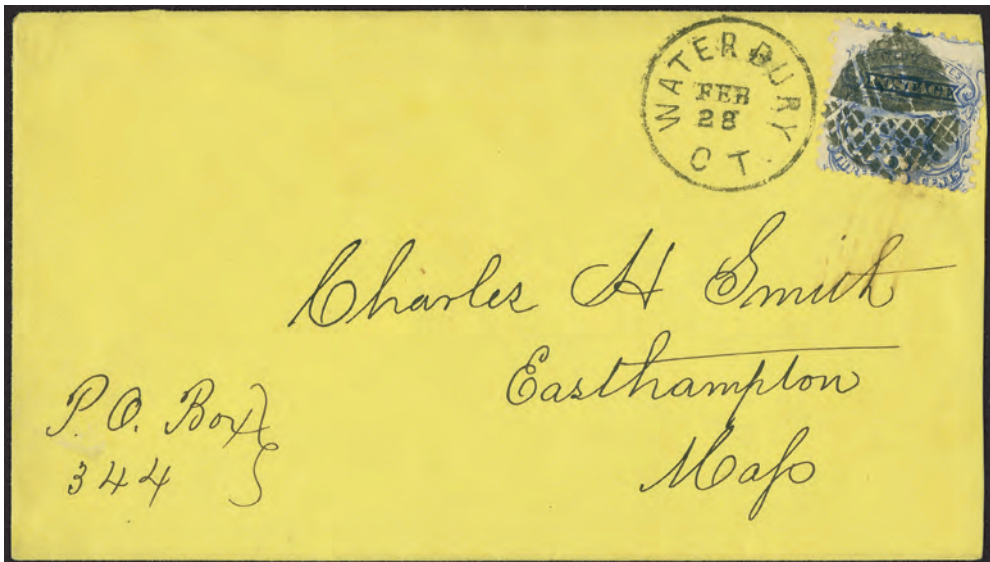 WATERBURY
FEB
28
CT.
POSTAGE
CENTS
Charles H Smith
Easthampton
Maſs
P.O. Box
344